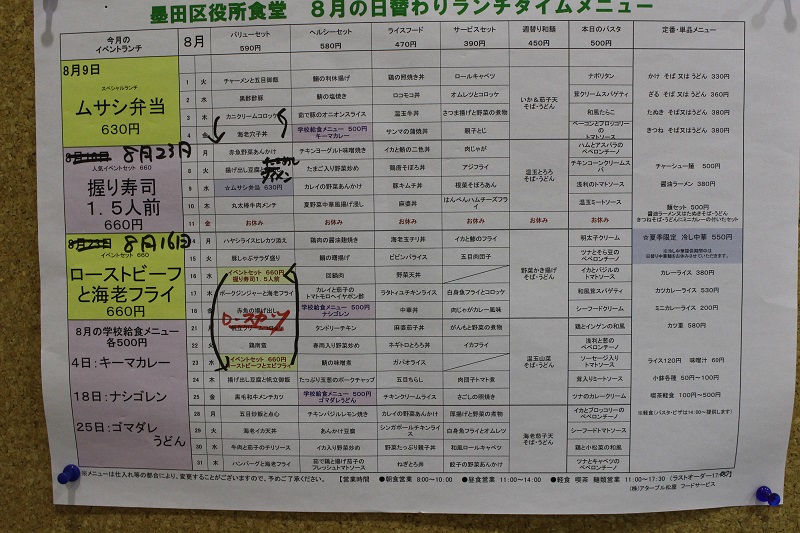 墨田区役所食堂 8月の日替わりランチタイムメニュー
今月の
イベントランチ
8月
バリューセット
590円
ヘルシーセット
580円
ライスフード
470円
サービスセット
390円
週替り和麺
450円
本日のパスタ
500円
定番・単品メニュー
8月9日
スペシャルランチ
ムサシ弁当
630円
8月23日
人気イベントセット 660
握り寿司
1.5人前
660円
8月16日
イベントセット 660
ローストビーフ
と海老フライ
660円
8月の学校給食メニュー
各500円
4日:キーマカレー
18日:ナシゴレン
25日:ゴマダレ
うどん
1 火 チャーメンと五目御飯 鯖の利休揚げ 鶏の照焼き丼 ロールキャベツ ナポリタン かけ そば 又は うどん 330円
2 水 黒酢酢豚 鯖の塩焼き ロコモコ丼 オムレツとコロッケ いか&茄子天 そば・うどん 茸クリームスパゲティ ざる そば 又は うどん 360円
3 木 カニクリームコロッケ 茹で豚のオニオンスライス 温玉牛丼 さつま揚げと野菜の煮物 和風たらこ たぬき そば 又は うどん 380円
4 金 海老穴子丼 学校給食メニュー 500円 キーマカレー サンマの蒲焼丼 親子とじ ベーコンとブロッコリーのトマトソース きつね そば 又は うどん 380円
月 赤魚野菜あんかけ チキンヨーグルト味噌焼き イカと鯖の二色丼 肉じゃが ハムとアスパラの ペペロンチーノ
8 火 揚げ出し豆腐と たまご入り野菜炒め 鶏唐そぼろ丼 アジフライ 温玉とろろ そば・うどん チキンコーンクリームスパ チャーシュー麺 500円
9 水 ☆ムサシ弁当 630円 カレイの野菜あんかけ 豚キムチ丼 根菜そぼろあん 浅利のトマトソース 醤油ラーメン 380円
10 木 丸太棒牛肉メンチ 夏野菜中華風揚げ浸し 麻婆丼 はんぺんハムチーズフライ 温玉ミートソース 麺セット 500円
醤油ラーメン又はたぬきそば・うどん
きつねそば・うどんにミニカレーの付いたセット
11 金 お休み お休み お休み お休み お休み お休み
月 ハヤシライスヒレカツ添え 鶏肉の醤油麹焼き 海老玉チリ丼 イカと鯵のフライ 明太子クリーム ☆夏季限定 冷し中華 550円
15 火 豚しゃぶサラダ盛り 鯖の磯揚げ ビビンバライス 五目肉団子 ツナとそら豆の ペペロンチーノ
16 水 イベントセット 660円 握り寿司1.5人前 回鍋肉 野菜天丼 野菜かき揚げ そば・うどん イカとバジルの トマトソース カレーライス 380円
17 木 ポークジンジャーと海老フライ カレイと茄子の トマトモロヘイヤポン酢 ラタトゥユチキンライス 白身魚フライとコロッケ 和風茸スパゲティ カツカレーライス 530円
18 金 赤魚の揚げ出し 学校給食メニュー 500円 ナシゴレン 中華丼 肉じゃがカレー風味 シーフードクリーム ミニカレーライス 200円
ロースカツ
21 月 タンドリーチキン 麻婆茄子丼 がんもと野菜の煮物 鶏とインゲンの和風 カツ重 580円
22 火 鶏南蛮 春雨入り野菜炒め ネギトロとろろ丼 イカフライ 温玉山菜 そば・うどん 浅利と葱の ペペロンチーノ
23 水 イベントセット 660円 ローストビーフとエビフライ 鯖の味噌煮 ガパオライス ソーセージ入り トマトソース ライス120円 味噌汁 60円
24 木 揚げ出し豆腐と帆立御飯 たっぷり玉葱のポークチャップ 五目ちらし 肉団子トマト煮 茸入りミートソース 小鉢各種 50円～100円
25 金 黒毛和牛メンチカツ 学校給食メニュー 500円 ゴマダレうどん チキンクリームライス さごしの照焼き ツナのカレークリーム 喫茶軽食 100円～500円
28 月 五目炒飯と点心 チキンバジルレモン焼き カレイの野菜あんかけ丼 厚揚げと野菜の煮物 イカとブロッコリーの ペペロンチーノ ※軽食(パスタ・ピザは14:00～提供します)
29 火 海老イカ天丼 あんかけ豆腐 シンガポールチキンライス 白身魚フライとオムレツ 海老茄子天 そば・うどん シーフードトマトソース
30 水 牛肉と茄子のチリソース イカ入り野菜炒め 野菜たっぷり親子丼 和風ロールキャベツ 鶏と小松菜の和風
31 木 ハンバーグと海老フライ 茹で鶏と揚げ茄子の フレッシュトマトソース ねぎとろ丼 餃子の野菜あんかけ ツナとキャベツの ペペロンチーノ
※メニューは仕入れ等の都合により、変更することがございますので、予めご了承ください。 【営業時間 ●朝食営業 8:00～10:00 ●昼食営業 11:00～14:00 ●軽食 喫茶 麺類営業 11:00～17:30 (ラストオーダー17:
(株)アターブル松屋 フードサービス